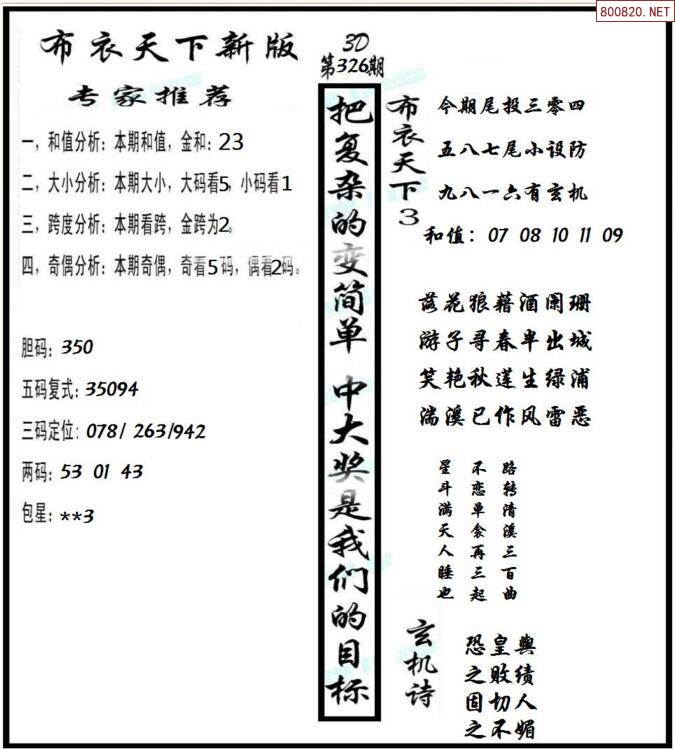 800820.NET
布衣天下新版
专家推荐
一，和值分析：本期和值，金和：23
二，大小分析：本期大小，大码看5，小码看1
三，跨度分析：本期看跨，金跨为2。
四，奇偶分析：本期奇偶，奇看5码，偶看2码。
胆码：350
五码复式：35094
三码定位：078/ 263/942
两码：53 01 43
包星：**3
3D
第326期
把复杂的变简单 中大奖是我们的目标
布衣天下3
今期尾投三零四
五八七尾小设防
九八一六有玄机
和值：07 08 10 11 09
落花狼藉酒阑珊
游子寻春半出城
笑艳秋莲生绿浦
湍溪已作风雷恶
路转清溪三百曲
不恋单衾再三起
星斗满天人睡也
玄机诗
恐皇舆
之败绩
固切人
之不媚